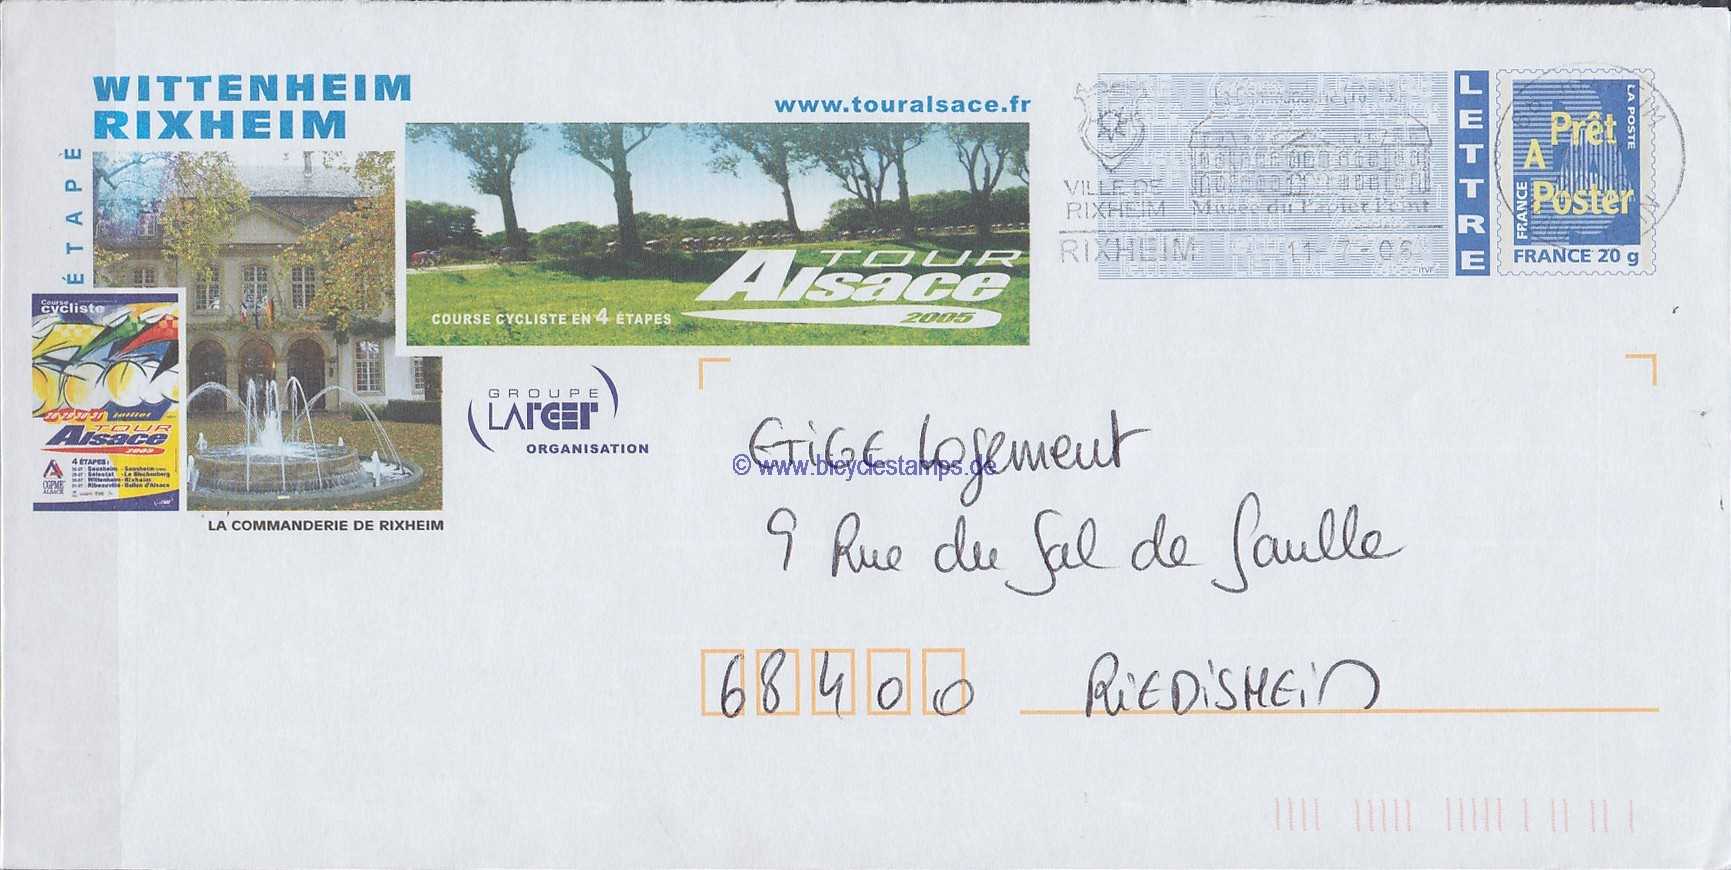 WITTENHEIM
RIXHEIM
ÉTAPE
www.touralsace.fr
TOUR
Alsace
2005
COURSE CYCLISTE EN 4 ÉTAPES
Course
cycliste
28-29-30-31 juillet
TOUR
Alsace
2005
4 ÉTAPES :
Sausheim - Sausheim
Sélestat - Le Bischenberg
Wittenheim - Rixheim
Ribeauvillé - Ballon d'Alsace
CGPME
ALSACE
LA COMMANDERIE DE RIXHEIM
GROUPE
LARGER
ORGANISATION
VILLE DE
RIXHEIM
Musée du Papier Peint
RIXHEIM
11-7-06
ITVF
LETTRE
LA POSTE
Prêt
A
Poster
FRANCE
FRANCE 20 g
ETIGE Logement
© www.bicyclestamps.de
9 Rue du Gal de Gaulle
68400 RIEDISHEIM